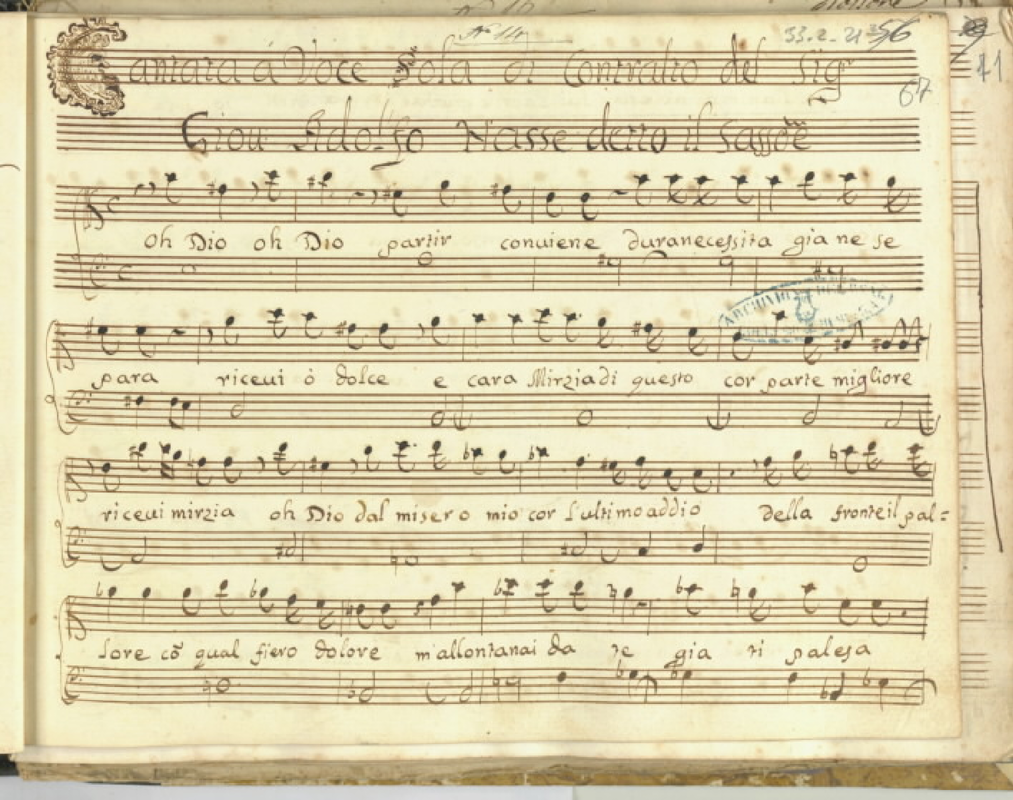 No. 14
33-2-21 56
41
67
Cantata á Voce Sola di Contralto del Sigr
Giou Adolfo Hasse detto il Sassōe
Oh Dio oh Dio partir conuiene duranecessita gia ne se
para riceui ò dolce e cara Mirzia di questo cor parte migliore
riceui mirzia oh Dio dal misero mio cor l'ultimo addio della fronte il pal=
lore cō qual fiero dolore m'allontanai da te gia ti palesa
ARCHIVIO